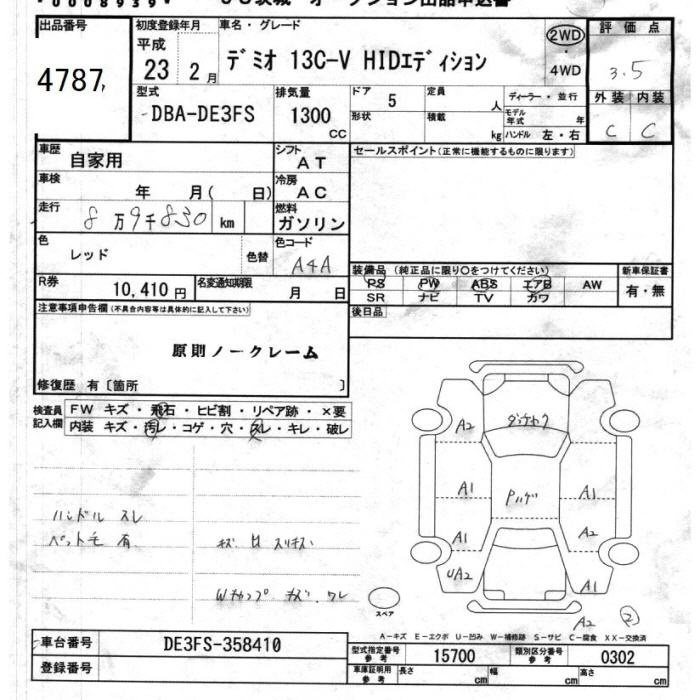 出品番号
4787
初度登録年月
平成
23 2月
車名・グレード
デミオ 13C-V HIDエディション
2WD
・
4WD
評価点
3.5
外装 内装
C C
型式
DBA-DE3FS
排気量
1300
CC
ドア 5
形状
定員 人
積載 kg
ディーラー・並行
モデル年式 年
ハンドル 左・右
車歴 自家用
シフト
AT
セールスポイント(正常に機能するものに限ります)
車検 年 月( 日)
冷房
AC
走行 8万9千830 km
燃料
ガソリン
色
レッド
色替
色コード
A4A
装備品(純正品に限り○をつけてください)
PS PW ABS エアB AW
SR ナビ TV カワ
新車保証書
有・無
R券 10,410円
名変通知期限 月 日
後日品
注意事項申告欄(不具合内容等は具体的に記入して下さい)
原則ノークレーム
修復歴 有〔箇所 〕
検査員
記入欄
FW キズ・飛石・ヒビ割・リペア跡・×要
内装 キズ・汚レ・コゲ・穴・スレ・キレ・破レ
ハンドル スレ
ペット毛 有
A2
A1
Pハゲ
A1
A1
A2
UA2
A1
A2
2
スペア
A-キズ E-エクボ U-凹み W-補修跡 S-サビ C-腐食 XX-交換済
車台番号 DE3FS-358410
登録番号
型式指定番号
参考
15700
類別区分番号
参考
0302
車庫証明用
参考
長さ cm
幅 cm
高さ cm